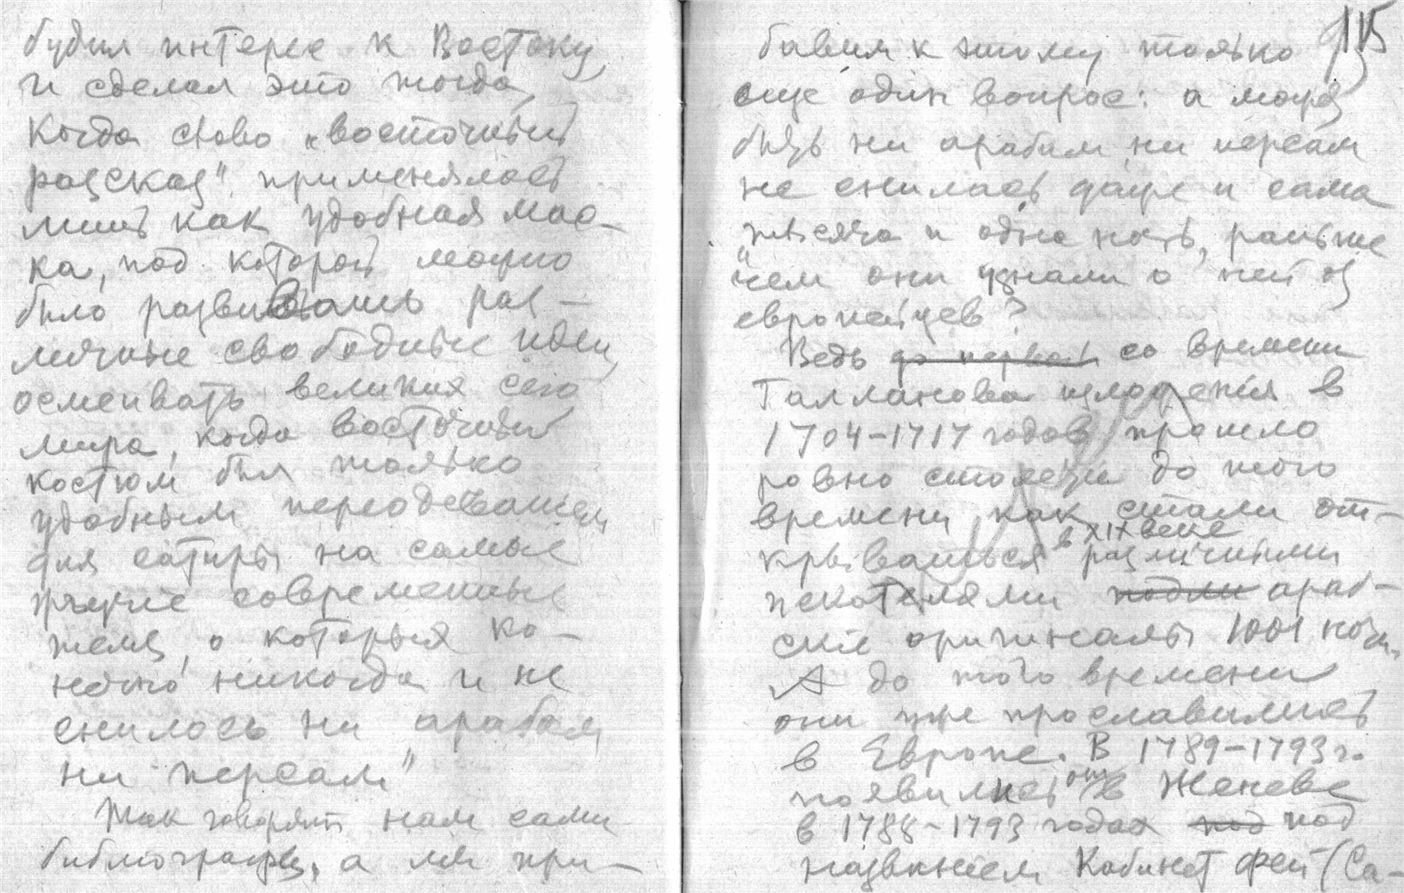 будил интерес к Востоку,
и сделал это тогда,
когда слово „восточный
рассказ" применялось
лишь как удобная мас-
ка, под которой можно
было развивать раз-
личные свободные идеи,
осмеивать великих сего
мира, когда восточный
костюм был только
удобным переодеванием
для сатиры на самые
жгучие современные
темы, о которых ко-
нечно никогда и не
снилось ни арабам
ни персам"
Так говорят нам сами
библиографы, а мы при-
115
бавим к этому только
еще один вопрос: а может
быть ни арабам, ни персам
не снилась даже и сама
„тысяча и одна ночь", раньше
чем они узнали о ней из
европейцев?
Ведь до первой со времени
Галланова изложения в
1704-1717 годов прошло
ровно столетие до того
времени, как стали от-
крываться в XIX веке различными
искателями араб-
ские оригиналы 1001 ночи.
А до того времени
они уже прославились
в Европе. В 1789-1793 г.
появились они в Женеве
в 1788-1793 годах под под
названием Кабинет фей (Са-